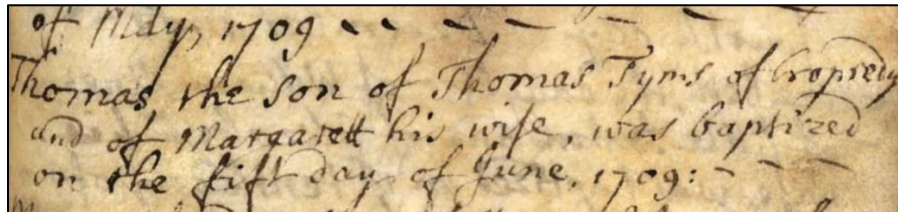 of May, 1709 - - - - - -
Thomas, the son of Thomas Tyms of Cropredy
and of Margarett his wife, was baptized
on the fift day of June, 1709: - - -